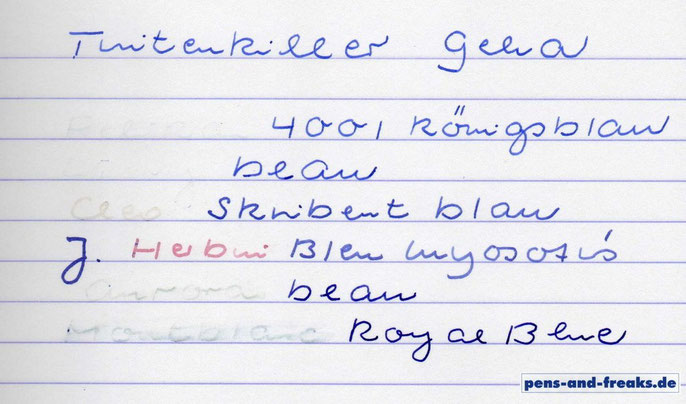 Tintenkiller Geha
Pelikan 4001 Königsblau
blau
Cleo Skribent blau
J. Herbin Bleu Myosotis
Aurora blau
Montblanc Royal Blue
pens-and-freaks.de